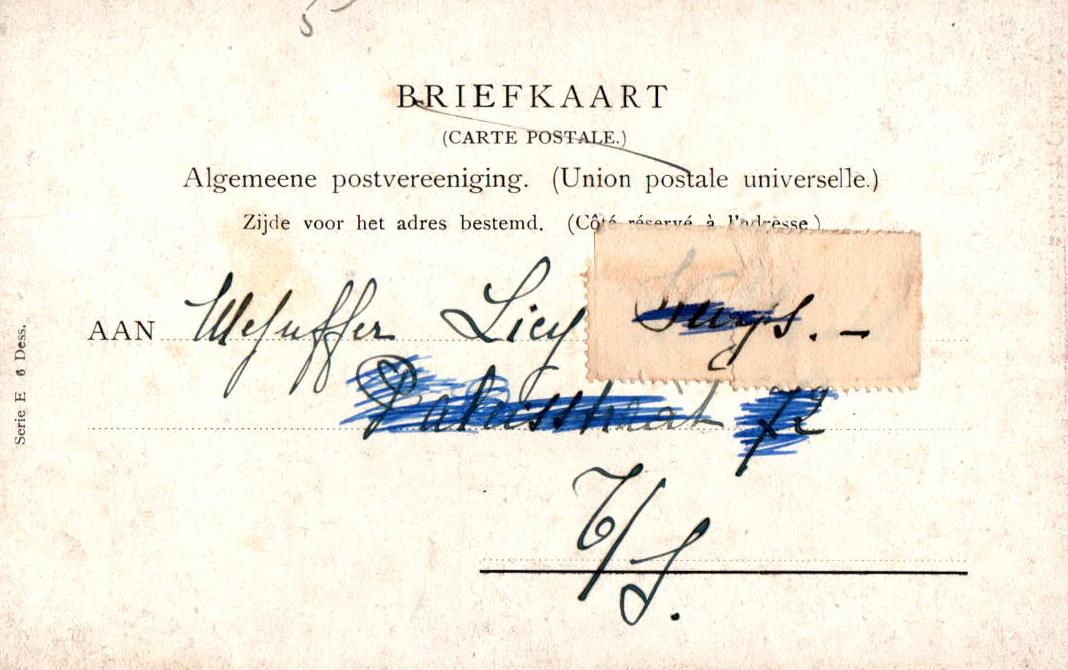 5
BRIEFKAART
(CARTE POSTALE.)
Algemeene postvereeniging. (Union postale universelle.)
Zijde voor het adres bestemd. (Côté réservé à l'adresse.)
AAN Mejuffer Licy
72
T/S.
Serie E 6 Dess.